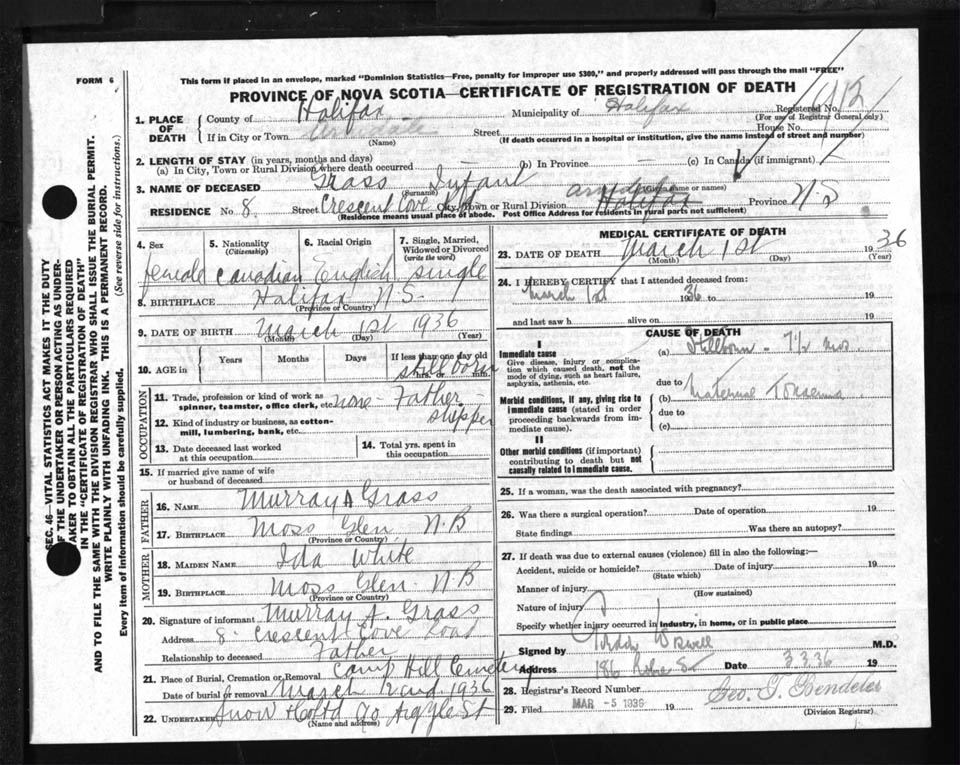 FORM 6
This form if placed in an envelope, marked "Dominion Statistics—Free, penalty for improper use $300," and properly addressed will pass through the mail "FREE"
PROVINCE OF NOVA SCOTIA—CERTIFICATE OF REGISTRATION OF DEATH
SEC. 46—VITAL STATISTICS ACT MAKES IT THE DUTY
OF THE UNDERTAKER OR PERSON ACTING AS UNDER-
TAKER TO OBTAIN ALL THE PARTICULARS REQUIRED
IN THE "CERTIFICATE OF REGISTRATION OF DEATH"
AND TO FILE THE SAME WITH THE DIVISION REGISTRAR WHO SHALL ISSUE THE BURIAL PERMIT.
WRITE PLAINLY WITH UNFADING INK. THIS IS A PERMANENT RECORD.
Every item of information should be carefully supplied. (See reverse side for instructions.)
1. PLACE OF DEATH
County of Halifax Municipality of Halifax Registered No.
(For use of Registrar General only)
If in City or Town Armdale Street House No.
(Name) (If death occurred in a hospital or institution, give the name instead of street and number)
2. LENGTH OF STAY (in years, months and days)
(a) In City, Town or Rural Division where death occurred — (b) In Province — (c) In Canada (if immigrant)
3. NAME OF DECEASED Grass Infant
(Surname) (Given name or names)
RESIDENCE No. 8 Street Crescent Cove City, Town or Rural Division Armdale Halifax Province N.S
(Residence means usual place of abode. Post Office Address for residents in rural parts not sufficient)
4. Sex 5. Nationality (Citizenship) 6. Racial Origin 7. Single, Married, Widowed or Divorced (write the word)
female Canadian English single
8. BIRTHPLACE Halifax N.S.
(Province or Country)
9. DATE OF BIRTH March 1st 1936
(Month) (Day) (Year)
10. AGE in Years Months Days If less than one day old
hrs. or min.
still born
OCCUPATION
11. Trade, profession or kind of work as
spinner, teamster, office clerk, etc. none - Father -
12. Kind of industry or business, as cotton-
mill, lumbering, bank, etc.
13. Date deceased last worked
at this occupation
14. Total yrs. spent in
this occupation
15. If married give name of wife
or husband of deceased
FATHER
16. NAME Murray A Grass
17. BIRTHPLACE Moss Glen N.B
(Province or Country)
MOTHER
18. MAIDEN NAME Ida White
19. BIRTHPLACE Moss Glen N.B
(Province or Country)
20. Signature of informant Murray A. Grass
Address 8 Crescent Cove Road
Relationship to deceased Father
21. Place of Burial, Cremation or Removal Camp Hill Cemetery
Date of burial or removal March 2nd 1936
22. UNDERTAKER Snow & Co Ltd 90 Argyle St
(Name and address)
MEDICAL CERTIFICATE OF DEATH
23. DATE OF DEATH March 1st 1936
(Month) (Day) (Year)
24. I HEREBY CERTIFY that I attended deceased from:
March 1st 1936 to 19
and last saw h alive on 19
CAUSE OF DEATH
I
Immediate cause
Give disease, injury or complica-
tion which caused death, not the
mode of dying, such as heart failure,
asphyxia, asthenia, etc.
(a) Stillborn - 7 1/2 mos
due to
Morbid conditions, if any, giving rise to
immediate cause (stated in order
proceeding backwards from im-
mediate cause).
(b) Maternal Toxaemia
due to
(c)
II
Other morbid conditions (if important)
contributing to death but not
causally related to immediate cause.
25. If a woman, was the death associated with pregnancy?
26. Was there a surgical operation? Date of operation 19
State findings Was there an autopsy?
27. If death was due to external causes (violence) fill in also the following:—
Accident, suicide or homicide? Date of injury 19
(State which)
Manner of injury
(How sustained)
Nature of injury
Specify whether injury occurred in industry, in home, or in public place
Signed by Wiswell M.D.
Address 186 Robie St Date 3.3.36 19
28. Registrar's Record Number
29. Filed MAR -5 1936 19
(Division Registrar)